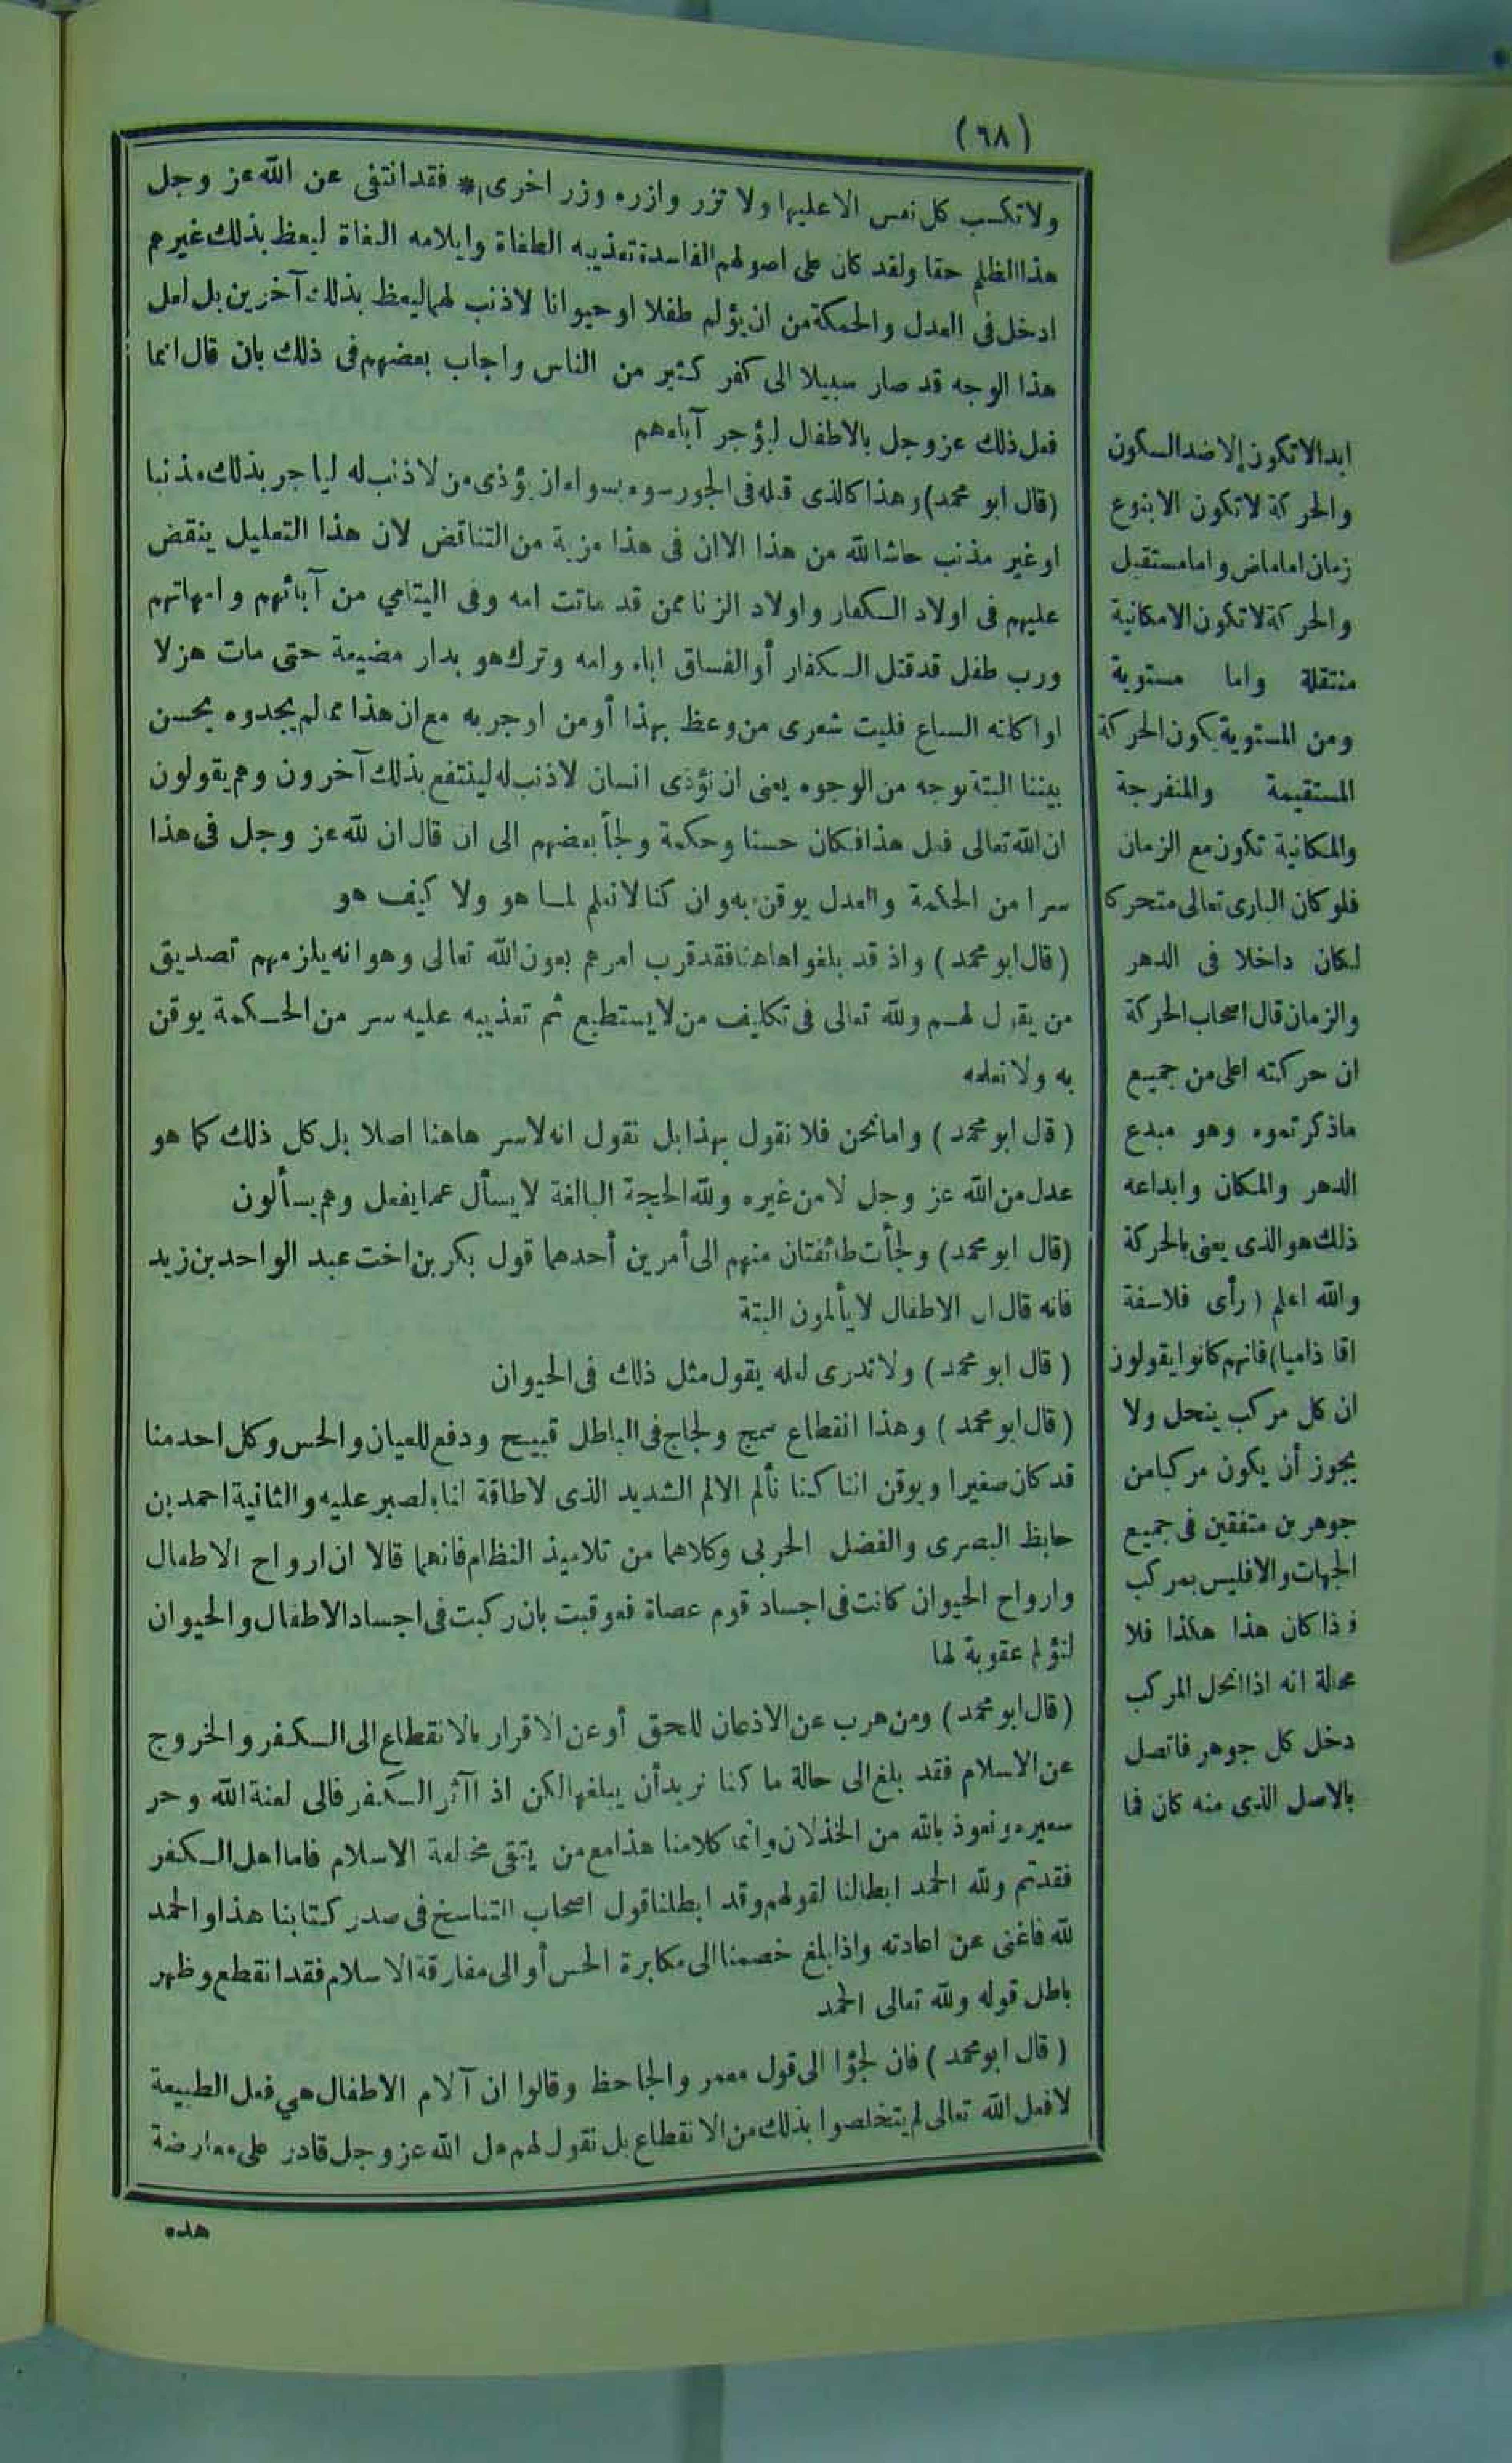 (٦٨)
ولا تكسب كل نفس الا عليها ولا تزر وازره وزر اخرى * فقد انتفى عن الله عز وجل
هذا الظلم حقا ولقد كان على اصولهم الفاسدة تعذيبه الطغاة وايلامه البغاة ليعظ بذلك غيرهم
ادخل فى العدل والحكمة من ان يؤلم طفلا او حيوانا لا ذنب لهما ليعظ بذلك آخرين بل لعل
هذا الوجه قد صار سبيلا الى كفر كثير من الناس واجاب بعضهم فى ذلك بان قال انما
فعل ذلك عز وجل بالاطفال ليؤجر آباءهم
(قال ابو محمد) وهذا كالذى قبله فى الجور سوء بسواء ان يؤذى من لا ذنب له ليأجر بذلك مذنبا
او غير مذنب حاشا لله من هذا الا ان فى هذا مزية من التناقض لان هذا التعليل ينقض
عليهم فى اولاد الكفار واولاد الزنا ممن قد ماتت امه وفى اليتامي من آبائهم وامهاتهم
ورب طفل قد قتل الكفار أو الفساق اباه وامه وترك هو بدار مضيعة حتى مات هزلا
او اكلته السباع فليت شعرى من وعظ بهذا أو من اوجر به مع ان هذا مما لم يجدوه يحسن
بيننا البتة بوجه من الوجوه يعنى ان نؤذى انسان لا ذنب له لينتفع بذلك آخرون وهم يقولون
ان الله تعالى فعل هذا فكان حسنا وحكمة ولجأ بعضهم الى ان قال ان لله عز وجل فى هذا
سرا من الحكمة والعدل يوقن به وان كنا لا نعلم لما هو ولا كيف هو
(قال ابو محمد) واذ قد بلغوا هاهنا فقد قرب امرهم بعون الله تعالى وهو انه يلزمهم تصديق
من يقول لهم ولله تعالى فى تكليف من لا يستطيع ثم تعذيبه عليه سر من الحكمة يوقن
به ولا نعلمه
(قال ابو محمد) واما نحن فلا نقول بهذا بل نقول انه لا سر هاهنا اصلا بل كل ذلك كما هو
عدل من الله عز وجل لا من غيره ولله الحجة البالغة لا يسأل عما يفعل وهم يسألون
(قال ابو محمد) ولجأت طائفتان منهم الى أمرين أحدهما قول بكر بن اخت عبد الواحد بن زيد
فانه قال ان الاطفال لا يألمون البتة
(قال ابو محمد) ولا ندرى لعله يقول مثل ذلك فى الحيوان
(قال ابو محمد) وهذا انقطاع سمج ولجاج فى الباطل قبيح ودفع للعيان والحس وكل احد منا
قد كان صغيرا ويوقن اننا كنا نألم الالم الشديد الذى لا طاقة لنا بالصبر عليه والثانية احمد بن
حابط البصرى والفضل الحربى وكلاهما من تلاميذ النظام فانهما قالا ان ارواح الاطفال
وارواح الحيوان كانت فى اجساد قوم عصاة فعوقبت بان ركبت فى اجساد الاطفال والحيوان
لتؤلم عقوبة لها
(قال ابو محمد) ومن هرب عن الاذعان للحق أو عن الاقرار بالانقطاع الى الكفر والخروج
عن الاسلام فقد بلغ الى حالة ما كنا نريد أن يبلغها لكن اذ اآثر الكفر فالى لعنة الله وحر
سعيره ونعوذ بالله من الخذلان وانما كلامنا هذا مع من يتقى مخالفة الاسلام فاما اهل الكفر
فقد تم ولله الحمد ابطالنا لقولهم وقد ابطلنا قول اصحاب التناسخ فى صدر كتابنا هذا والحمد
لله فاغنى عن اعادته واذا بلغ خصمنا الى مكابرة الحس أو الى مفارقة الاسلام فقد انقطع وظهر
باطل قوله ولله تعالى الحمد
(قال ابو محمد) فان لجؤا الى قول معمر والجاحظ وقالوا ان آلام الاطفال هي فعل الطبيعة
لا فعل الله تعالى لم يتخلصوا بذلك من الانقطاع بل نقول لهم هل الله عز وجل قادر على معارضة
هذه
ابدا لا تكون إلا ضد السكون
والحركة لا تكون الا بنوع
زمان اما ماض واما مستقبل
والحركة لا تكون الا مكانية
منتقلة واما مستوية
ومن المستوية يكون الحركة
المستقيمة والمنفرجة
والمكانية تكون مع الزمان
فلو كان البارى تعالى متحركا
لكان داخلا فى الدهر
والزمان قال اصحاب الحركة
ان حركته اعلى من جميع
ماذكرتموه وهو مبدع
الدهر والمكان وابداعه
ذلك هو الذى يعنى بالحركة
والله اعلم (رأى فلاسفة
اقا ذاميا) فانهم كانوا يقولون
ان كل مركب ينحل ولا
يجوز أن يكون مركبا من
جوهرين متفقين فى جميع
الجهات والا فليس بمركب
فذا كان هذا هكذا فلا
محالة انه اذا انحل المركب
دخل كل جوهر فاتصل
بالاصل الذى منه كان فما